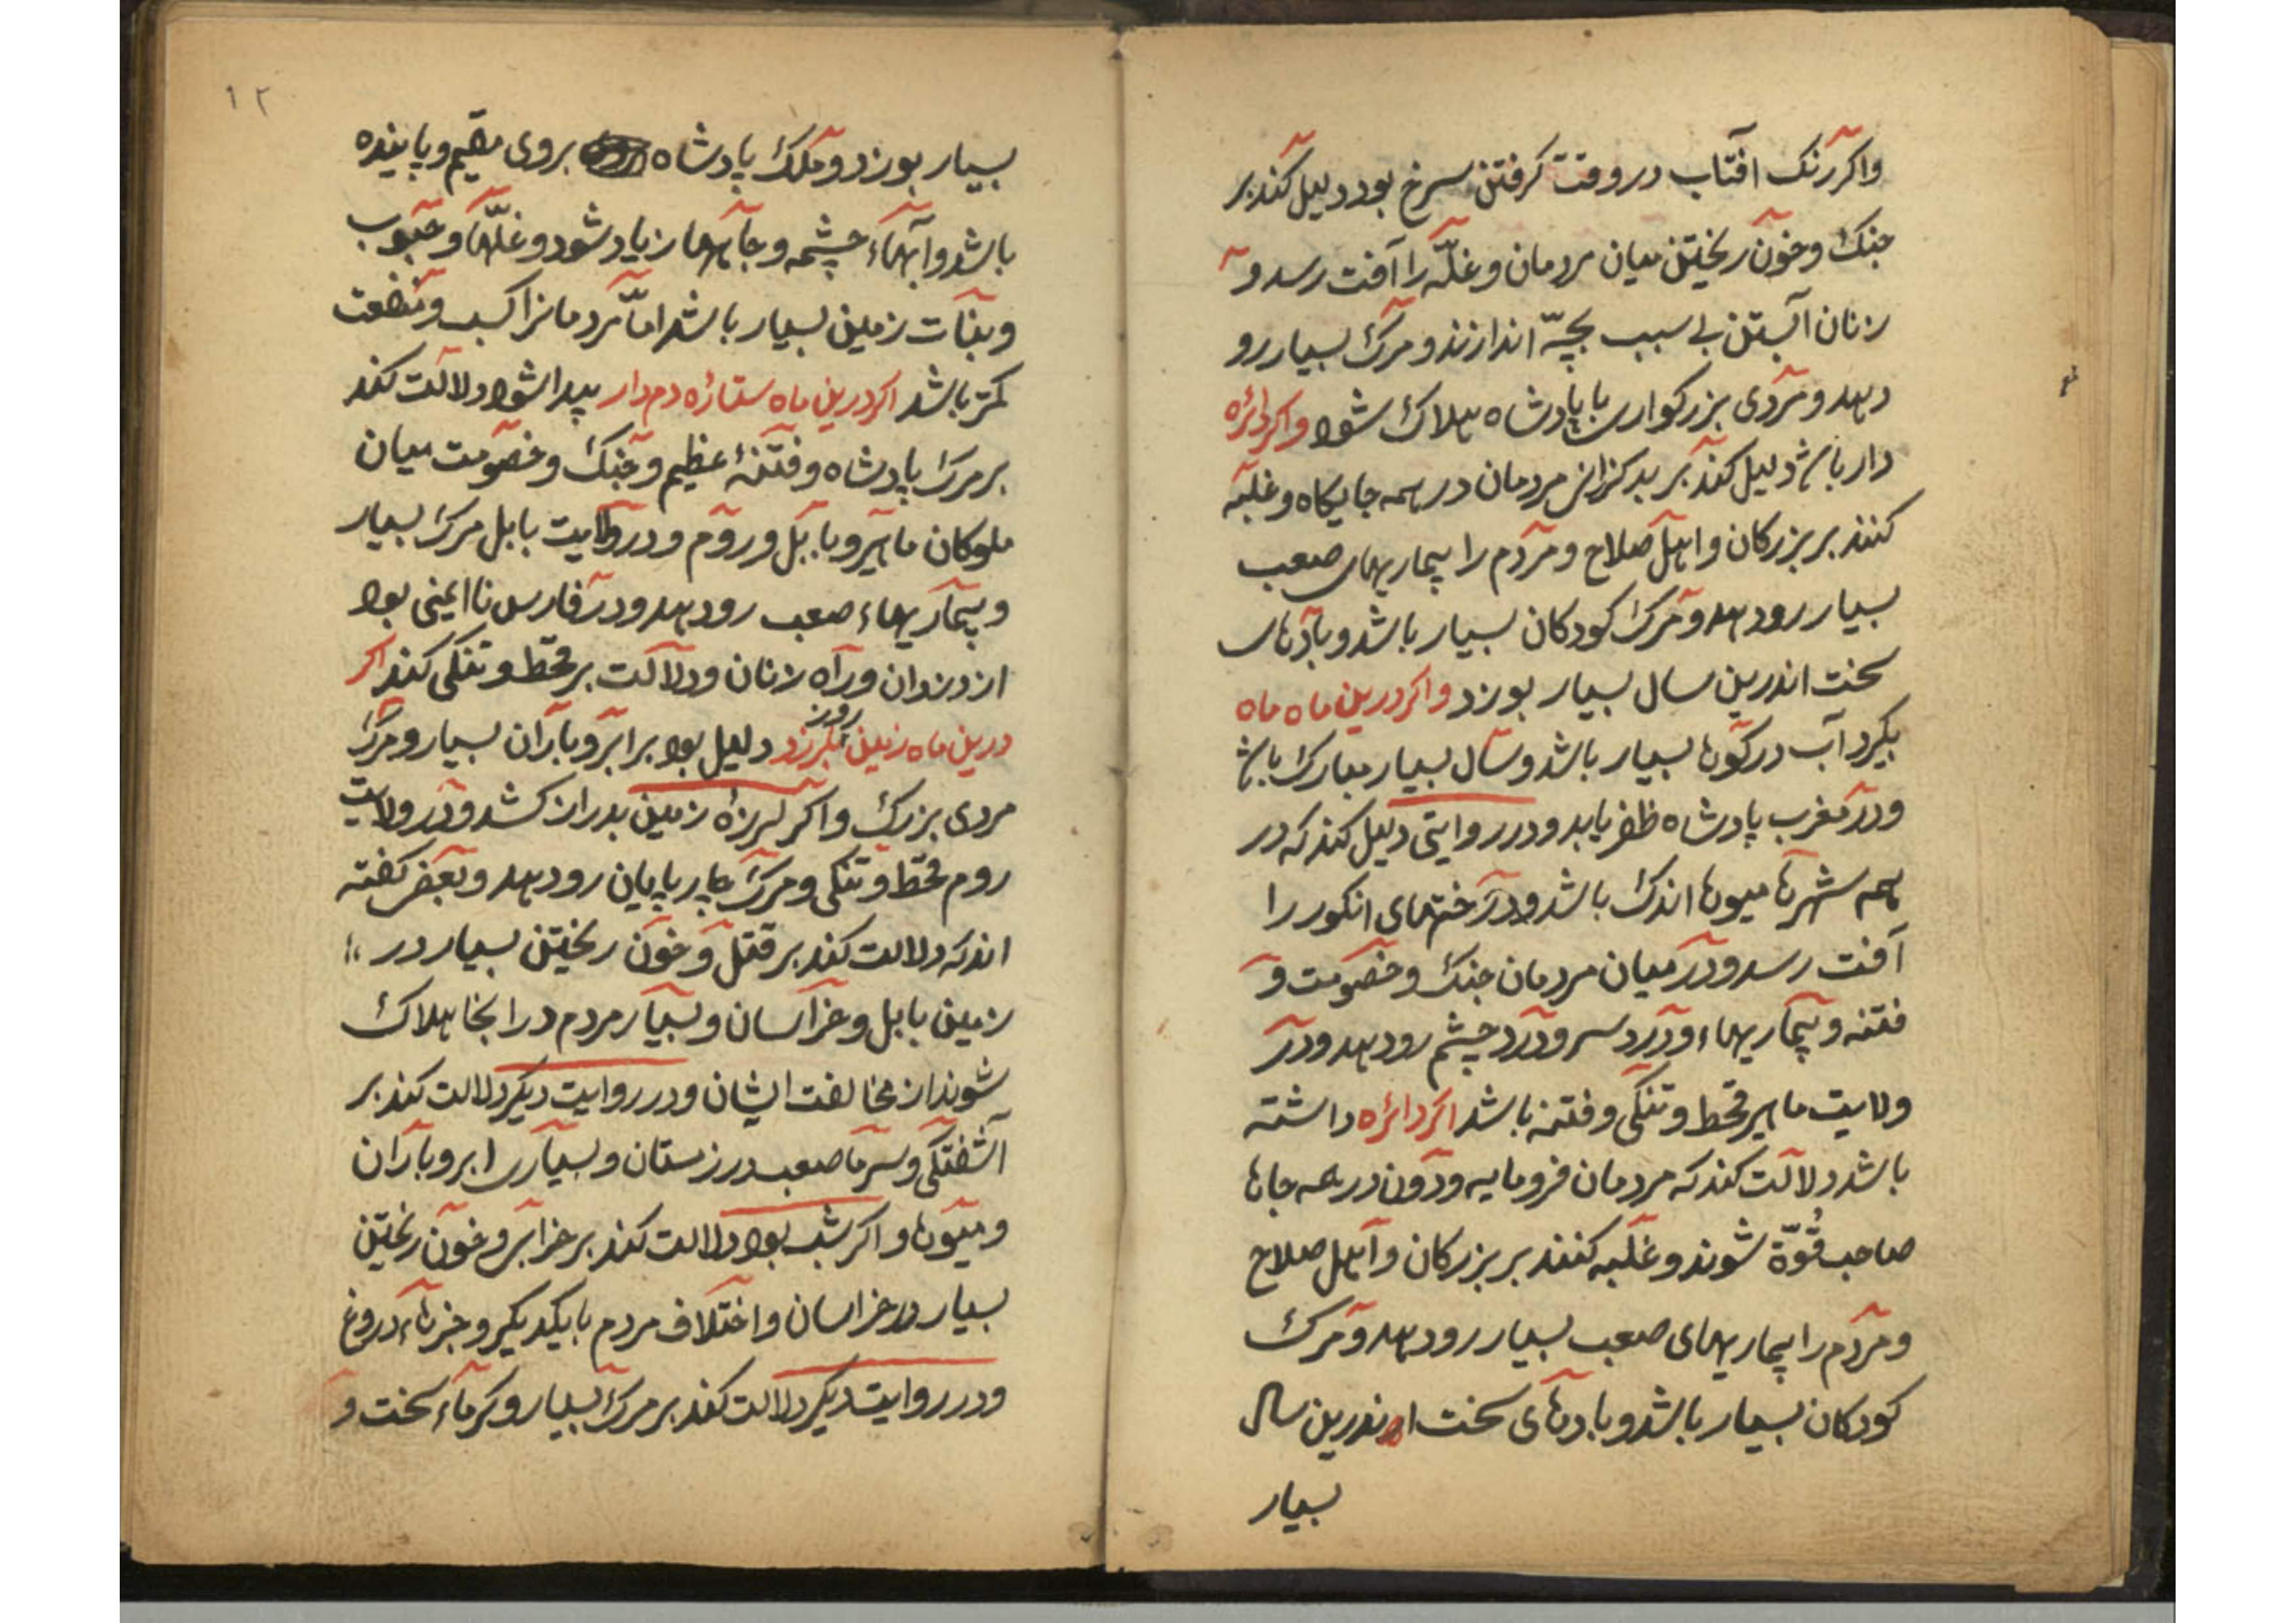 واکر رنک افتاب در وقت کرفتن سرخ بود دلیل کند بر
جنک و خون ریختن میان مردمان و غلّه را آفت رسد و
زنان آبستن بی سبب بچّه اندازند و مرک بسیار رو
دهد و مردی بزرکوار با پادشاه هلاک شود واکر دائره
دار باشد دلیل کند بر بد کزران مردمان در همه جایکاه و غلبه
کنند بر بزرکان و اهل صلاح و مردم را بیماریهای صعب
بسیار رو دهد و مرک کودکان بسیار باشد و بادهای
سخت اندرین سال بسیار بوزد و اکر درین ماه ماه
بکیرد آب در کوها بسیار باشد و سال بسیار مبارک باشد
و در مغرب پادشاه ظفر یابد و در روایتی دلیل کند که در
همه شهرها میوها اندک باشد و درختهای انکور را
آفت رسد و در میان مردمان جنک و خصومت و
فتنه و بیماریهاء و درد سر و درد چشم رو دهد و در
ولایت ماهیر قحط و تنکی و فتنه باشد اکر دائره داشته
باشد دلالت کند که مردمان فرومایه و دون در همه جاها
صاحب قُوّة شوند و غلبه کنند بر بزرکان و اهل صلاح
و مردم را بیماریهای صعب بسیار رو دهد و مرک
کودکان بسیار باشد و بادهای سخت اندرین سال
بسیار
۱۲
بسیار بوزد و ملک پادشاه بروی مقیم و پاینده
باشد و آبهاء چشمه و جاهها زیاد شود و غلّها و حبوب
و نبات زمین بسیار باشد امّا مردمانرا کسب و منفعت
کمتر باشد اکر درین ماه ستاره دم دار پیدا شود دلالت کند
بر مرک پادشاه و فتنۀ عظیم و جنک و خصومت میان
ملوکان ماهیر و بابل و روم و در ولایت بابل مرک بسیار
و بیماریهاء صعب رو دهد و در فارس نا ایمنی بود
از دزدان و راه زنان و دلالت بر قحط و تنکی کند اکر
درین ماه زمین بلرزد روز دلیل بود بر ابر و باران بسیار و مرک
مردی بزرک و اکر لرزۀ زمین بدراز کشد و در ولایت
روم قحط و تنکی و مرک چارپایان رو دهد و بعضی کفته
اند که دلالت کند بر قتل و خون ریختن بسیار در
زمین بابل و خراسان و بسیار مردم در اینجا هلاک
شوند از مخالفت ایشان و در روایت دیکر دلالت کند بر
آشفتکی و سرما صعب در زمستان و بسیاری ابر و باران
و میوها و اکر شب بود دلالت کند بر خرابی و خون ریختن
بسیار در خراسان و اختلاف مردم با یکدیکر و خبرهاء دروغ
و در روایت دیکر دلالت کند بر مرک بسیار و کرماء سخت و